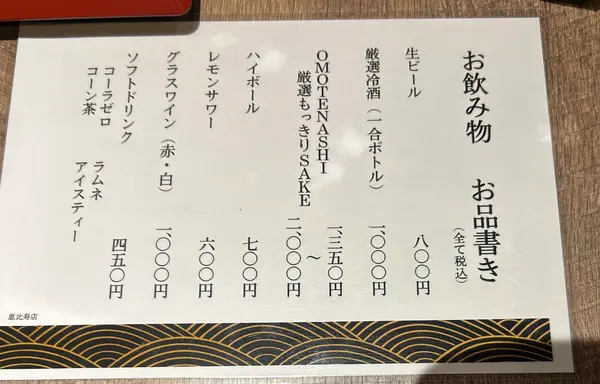 お飲み物 お品書き
(全て税込)
生ビール 八〇〇円
厳選冷酒(一合ボトル) 一、〇〇〇円
OMOTENASHI
厳選もっきりSAKE 一、三五〇円
〜
二、〇〇〇円
ハイボール 七〇〇円
レモンサワー 六〇〇円
グラスワイン(赤・白) 一、〇〇〇円
ソフトドリンク 四五〇円
コーラゼロ ラムネ
コーン茶 アイスティー
恵比寿店